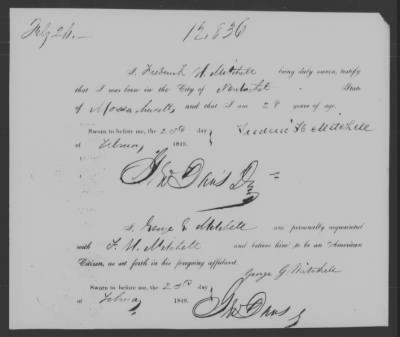 Feby 26.— 12,836
I, Frederick H. Mitchell being duly sworn, testify
that I was born in the City of Nantucket State
of Massachusetts, and that I am 28 years of age.
Sworn to before me, the 23rd day } Frederic H. Mitchell
of Feb 1849.
Davis
I, George G Mitchell am personally acquainted
with F. H. Mitchell and believe him to be an American
Citizen, as set forth in his foregoing affidavit.
George G. Mitchell
Sworn to before me, the 23rd day }
of Feb 1849. Davis